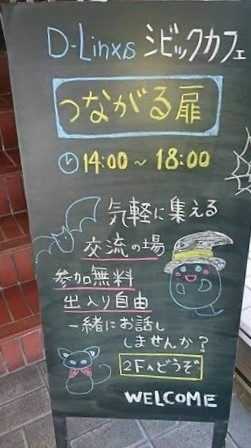 D-Linxs シビックカフェ
つながる扉
14:00~18:00
気軽に集える
交流の場
参加無料
出入り自由
一緒にお話し
しませんか?
2Fへどうぞ
WELCOME